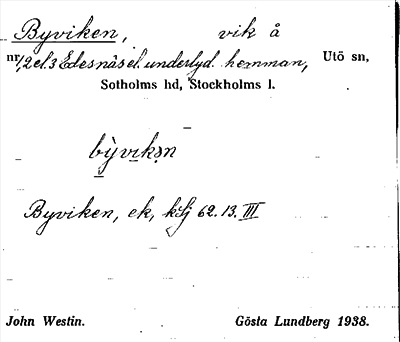 Byviken, vik å
nr 1, 2 el. 3 Edesnäs el. underlyd. hemman, Utö sn,
Sotholms hd, Stockholms l.
bỳvikən
Byviken, ek, 62.13.III
John Westin. Gösta Lundberg 1938.